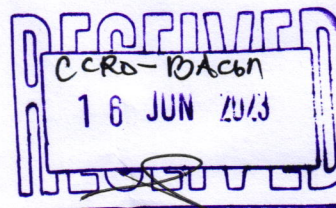 RECEIVED
CCRO-BACON
16 JUN 2023